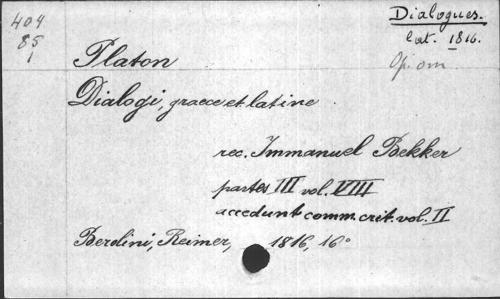 404
85
1
Dialogues.
lat. 1816.
Op. om.
Platon
Dialogi, graece et latine
rec. Immanuel Bekker
partes III vol. VIII
accedunt comm. crit. vol. II
Berolini, Reimer, 1816, 16°